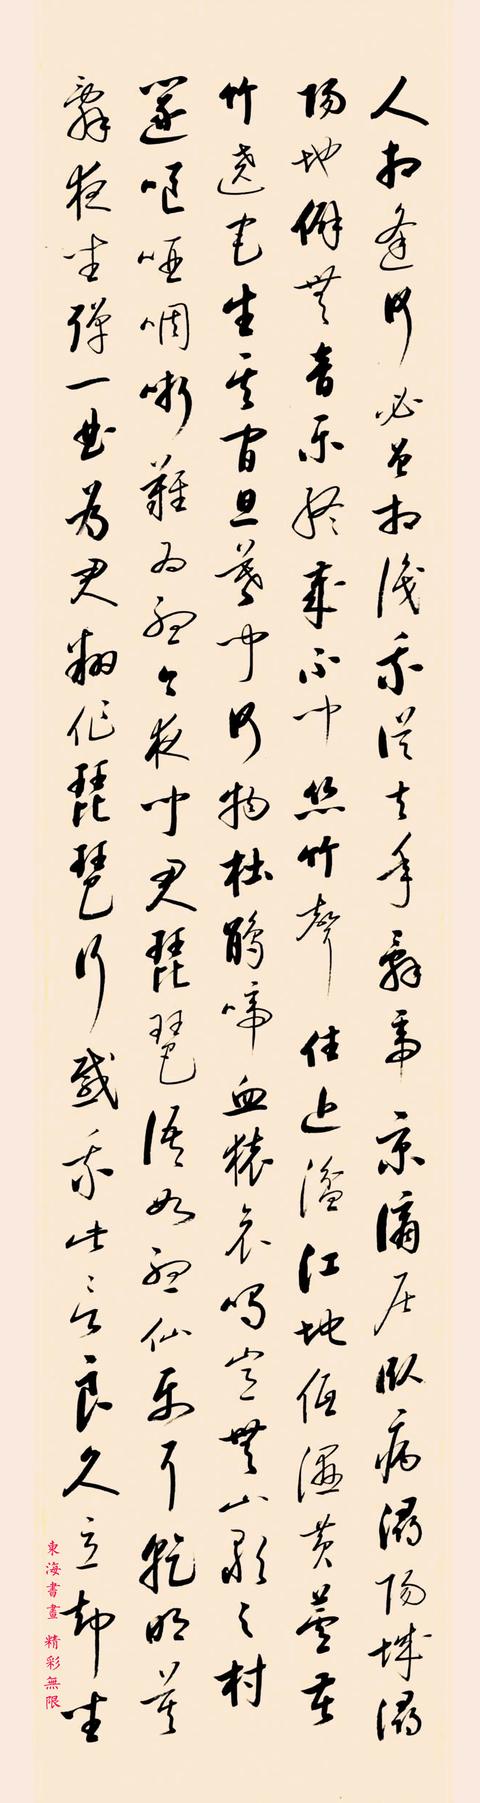 人相逢何必曾相識我從去年辭帝京謫居臥病潯陽城潯
陽地僻無音樂終歲不聞絲竹聲住近湓江地低濕黃蘆苦
竹遶宅生其間旦暮聞何物杜鵑啼血猿哀鳴豈無山歌與村
篴嘔啞啁哳難為聽今夜聞君琵琶語如聽仙樂耳暫明莫
辭夜坐彈一曲為君翻作琵琶行感我此言良久立却坐
東海書畫 精彩無限